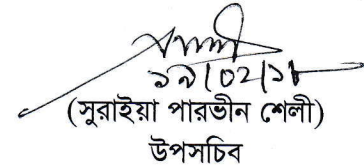 ১৯/০২/১৮
(সুরাইয়া পারভীন শেলী)
উপসচিব